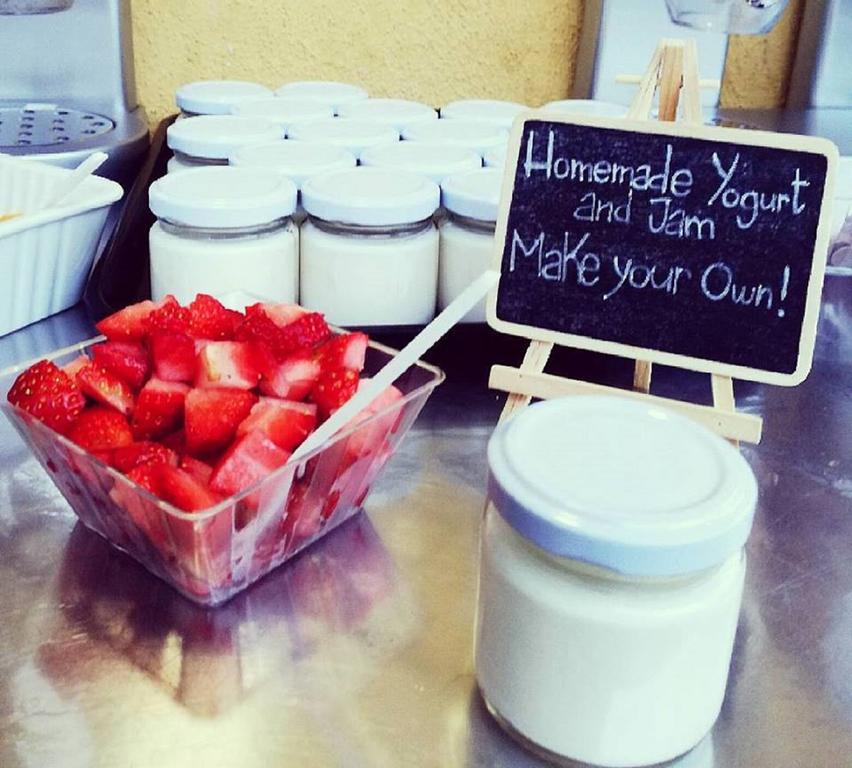 Homemade Yogurt
and Jam
Make your Own!